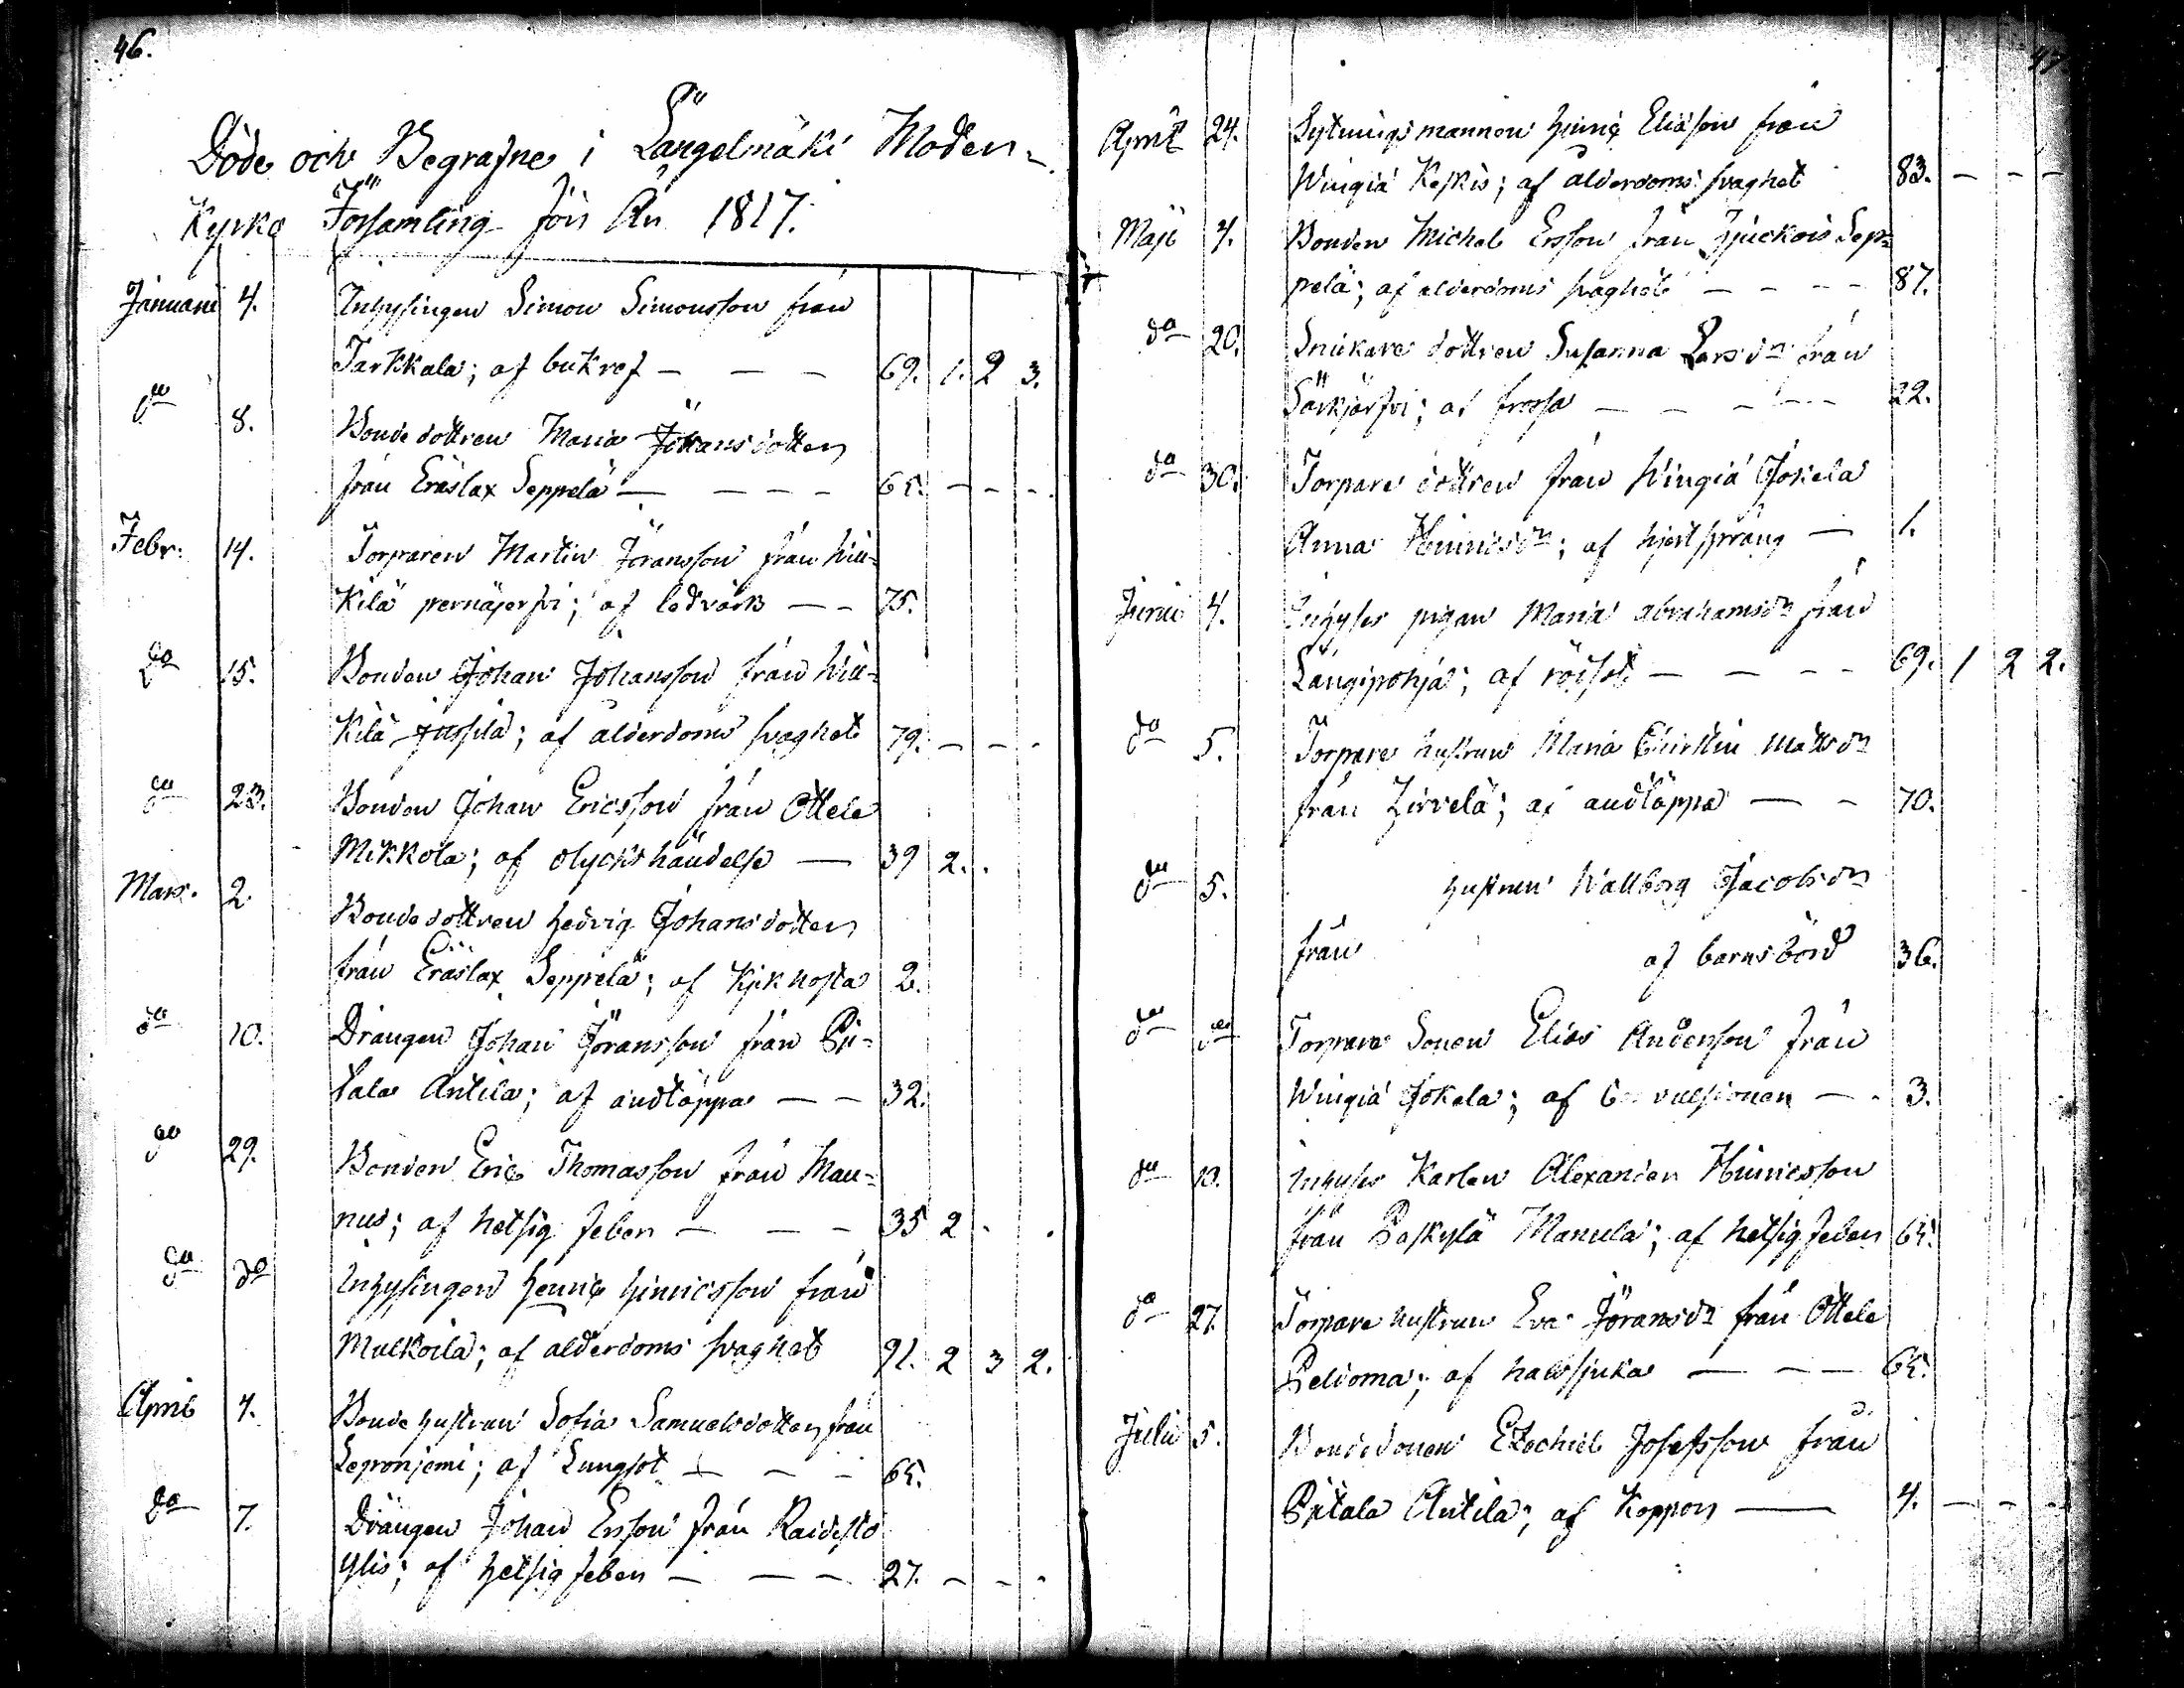 46.
Döde och Begrafne i Längelmäki Moder-
Kyrko Församling för År 1817.
Januarii 4. Inhysingen Simon Simonsson från
Tarkkala; af bukref — — — 69. 1. 2 3.
do 8. Bondedottren Maria Johansdotter
från Eräslax Seppelä — — — — 65. - - -
Febr: 14. Torparen Martin Göransson från Hill-
kilä pernäjerfvi; af ledvärk — — 75.
do 15. Bonden Johan Johansson från Hill-
kilä Jussila; af ålderdoms svaghet 79. - - -
do 23. Bonden Johan Ericsson från Ottele
Mikkola; af olyckshändelse — 39 2.
Mars. 2. Bondedottren Hedvig Johansdotter
från Eräslax Seppelä; af Kikhosta 2.
do 10. Drängen Johan Göransson från Pii-
tala Antila; af andtäppa — — 32.
do 29. Bonden Eric Thomasson från Mau-
nus; af hetsig feber — — — 35 2
do do Inhysingen Henric Hinricsson från
Mulkoila; af ålderdoms svaghet 91. 2 3 2.
April 4. Bonde hustrun Sofia Samuelsdotter från
Leponiemi; af Lungsot — — — 65.
do 7. Drängen Johan Ersson från Raidisto
Ylis; af hetsig feber — — — 27. - - -
47
April 24. Sytningsmannen Hinric Eliasson från
Wingiä Keskis; af ålderdoms svaghet 83. - - -
Maji 4. Bonden Michel Ersson från Sep-
pelä; af ålderdoms svaghet — — — — 87.
do 20. Snickare dottren Susanna Larsdr från
Särkjärfvi; af frossa — — — — 22.
do 30. Torpare dottren från Wingiä Jokela
Anna Hinricsdr; af hjertsprång — 1.
Junii 4. Inhyses pigan Maria Abrahamsdr från
Längipohja; af rötsot — — — — 69. 1 2 2.
do 5. Torpare hustrun Maria Christin Mattsdr
från Hirvelä; af andtäppa — — 70.
do 5. hustrun Wallborg Jacobsdr
från af barnsbörd 36.
do do Torpare Sonen Elias Andersson från
Wingiä Jokela; af Convulsioner — - 3.
do 10. Inhyses Karlen Alexander Hinricsson
från Paskylä Manula; af hetsig feber 65.
do 27. Torpare hustrun Eva Göransdr från Ottele
Peltoma; af halssjuka — — — 65.
Julii 5. Bondesonen Ezechiel Josefsson från
Piitala Antila; af Koppor — 4. - - -